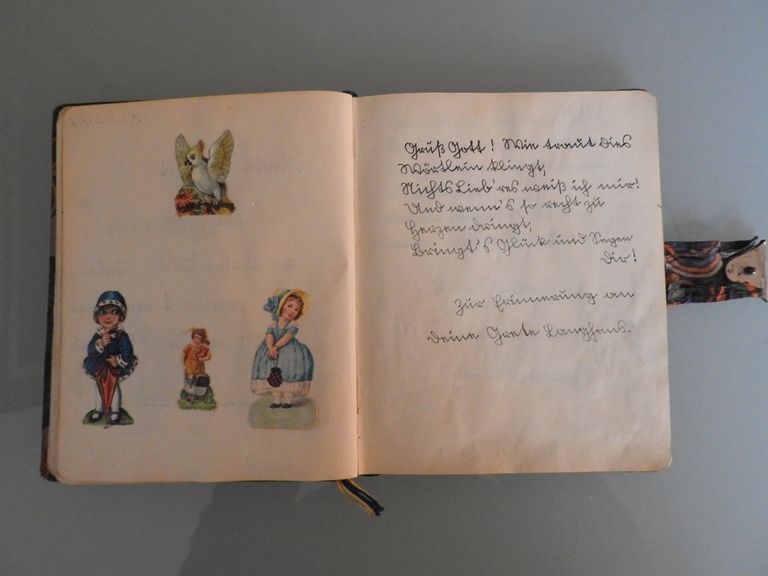 Grüß Gott! Wie traut dies
Wörtlein klingt,
Nichts Lieb'res weiß ich mir!
Und wenn's so recht zu
Herzen dringt,
Bringt's Glück und Segen
Dir!
Zur Erinnerung an
Deine Grete Langhans.